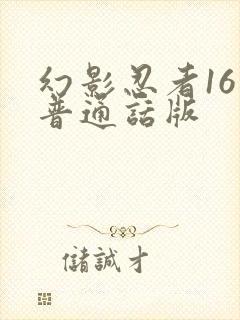 幻影忍者16
普通話版
儲誠才